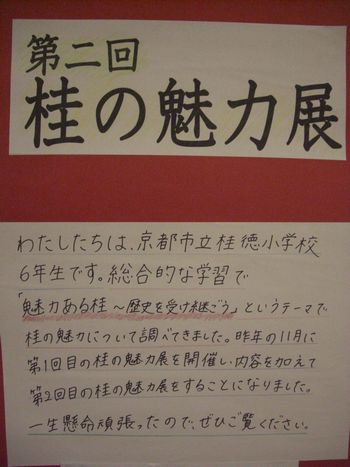 第二回
桂の魅力展
わたしたちは、京都市立桂徳小学校
6年生です。総合的な学習で
「魅力ある桂～歴史を受け継ごう」というテーマで
桂の魅力について調べてきました。昨年の11月に
第1回目の桂の魅力展を開催し、内容を加えて
第2回目の桂の魅力展をすることになりました。
一生懸命頑張ったので、ぜひご覧ください。